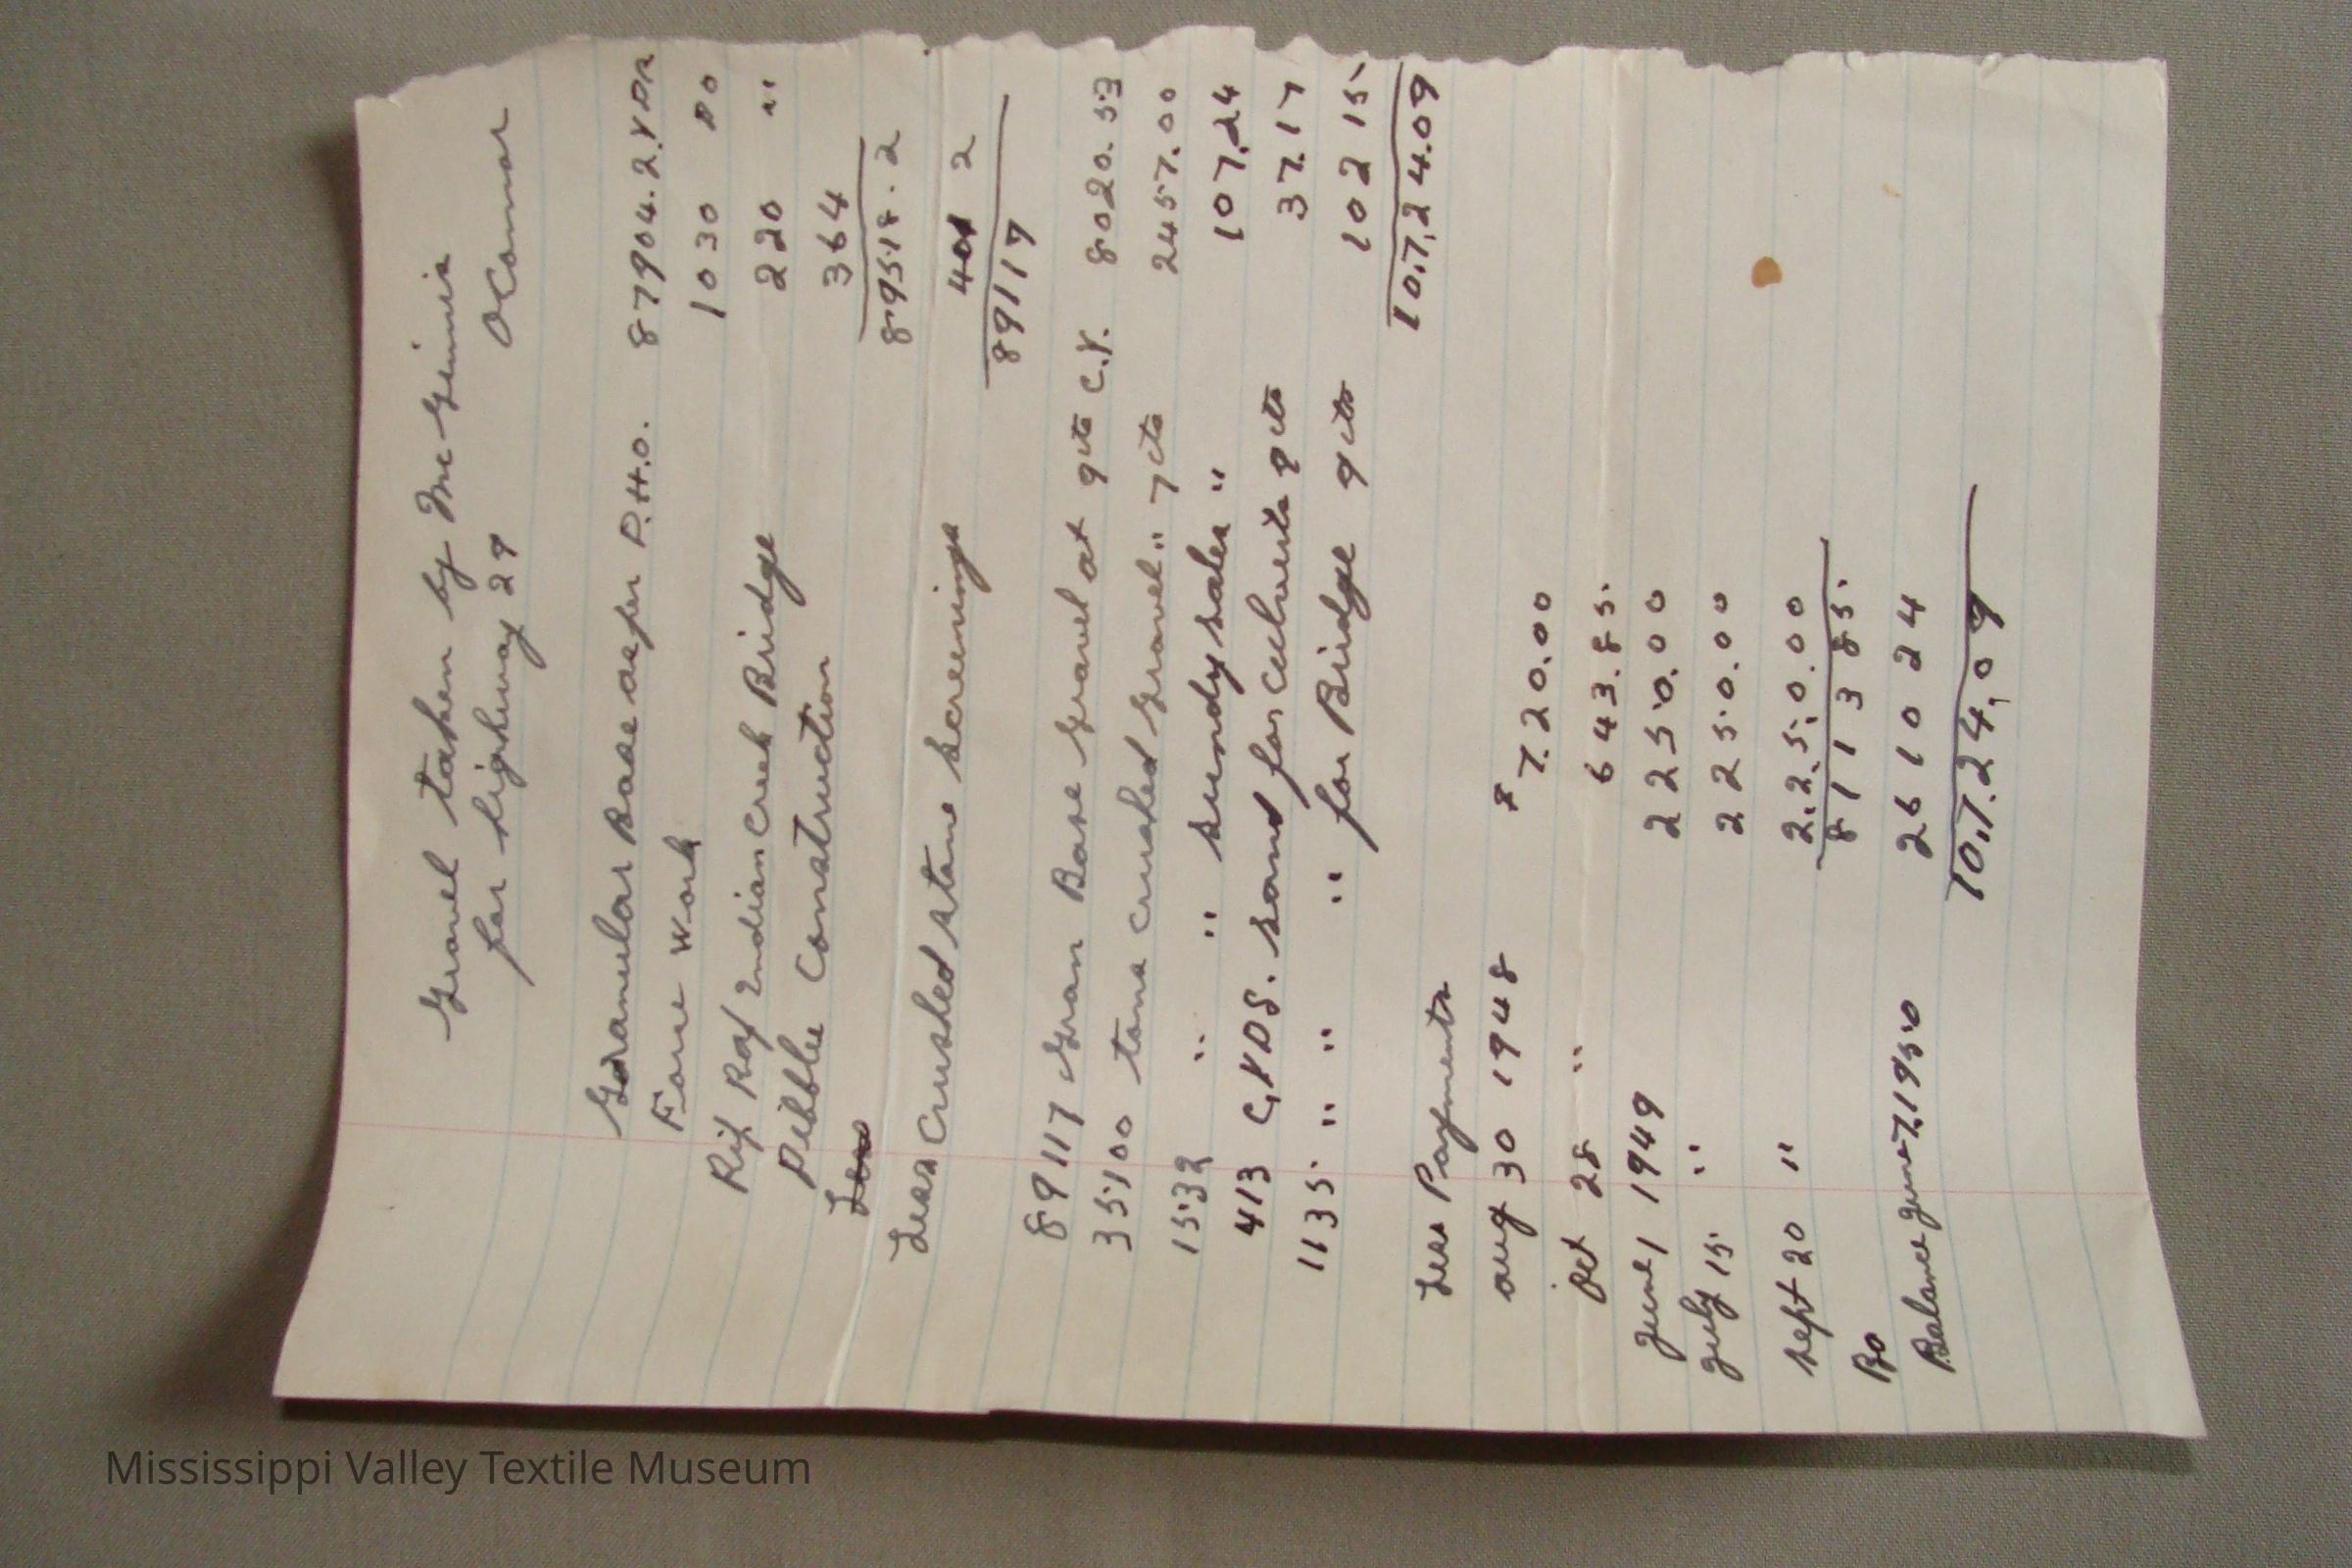 Gravel taken by McGinnis
for highway 29 OConnor
Granular Base as per D.H.O. 87904.2 YDs
Force Work 1030 Do
Rip Rap Indian Creek Bridge 220 "
Dibblee Construction 364
Less
89518.2
Less Crushed stone screenings 401 2
89117
89117 Gran Base Gravel at 9cts C.Y. 8020.53
35100 tons crushed Gravel " 7cts 2457.00
1532 " " sundry sales " 107.24
413 C,YDS. sand for Culverts 9cts 37.17
1135 " " " for Bridge 9cts 102 15
10,724.09
Less Payments
Aug 30 1948 $ 720.00
Oct 28 " 643.85
June 1 1949 2250.00
July 15 " 2250.00
Sept 20 " 2.250.00
8113 85
Ba
Balance June 7, 1950 2610 24
10,724,09
Mississippi Valley Textile Museum